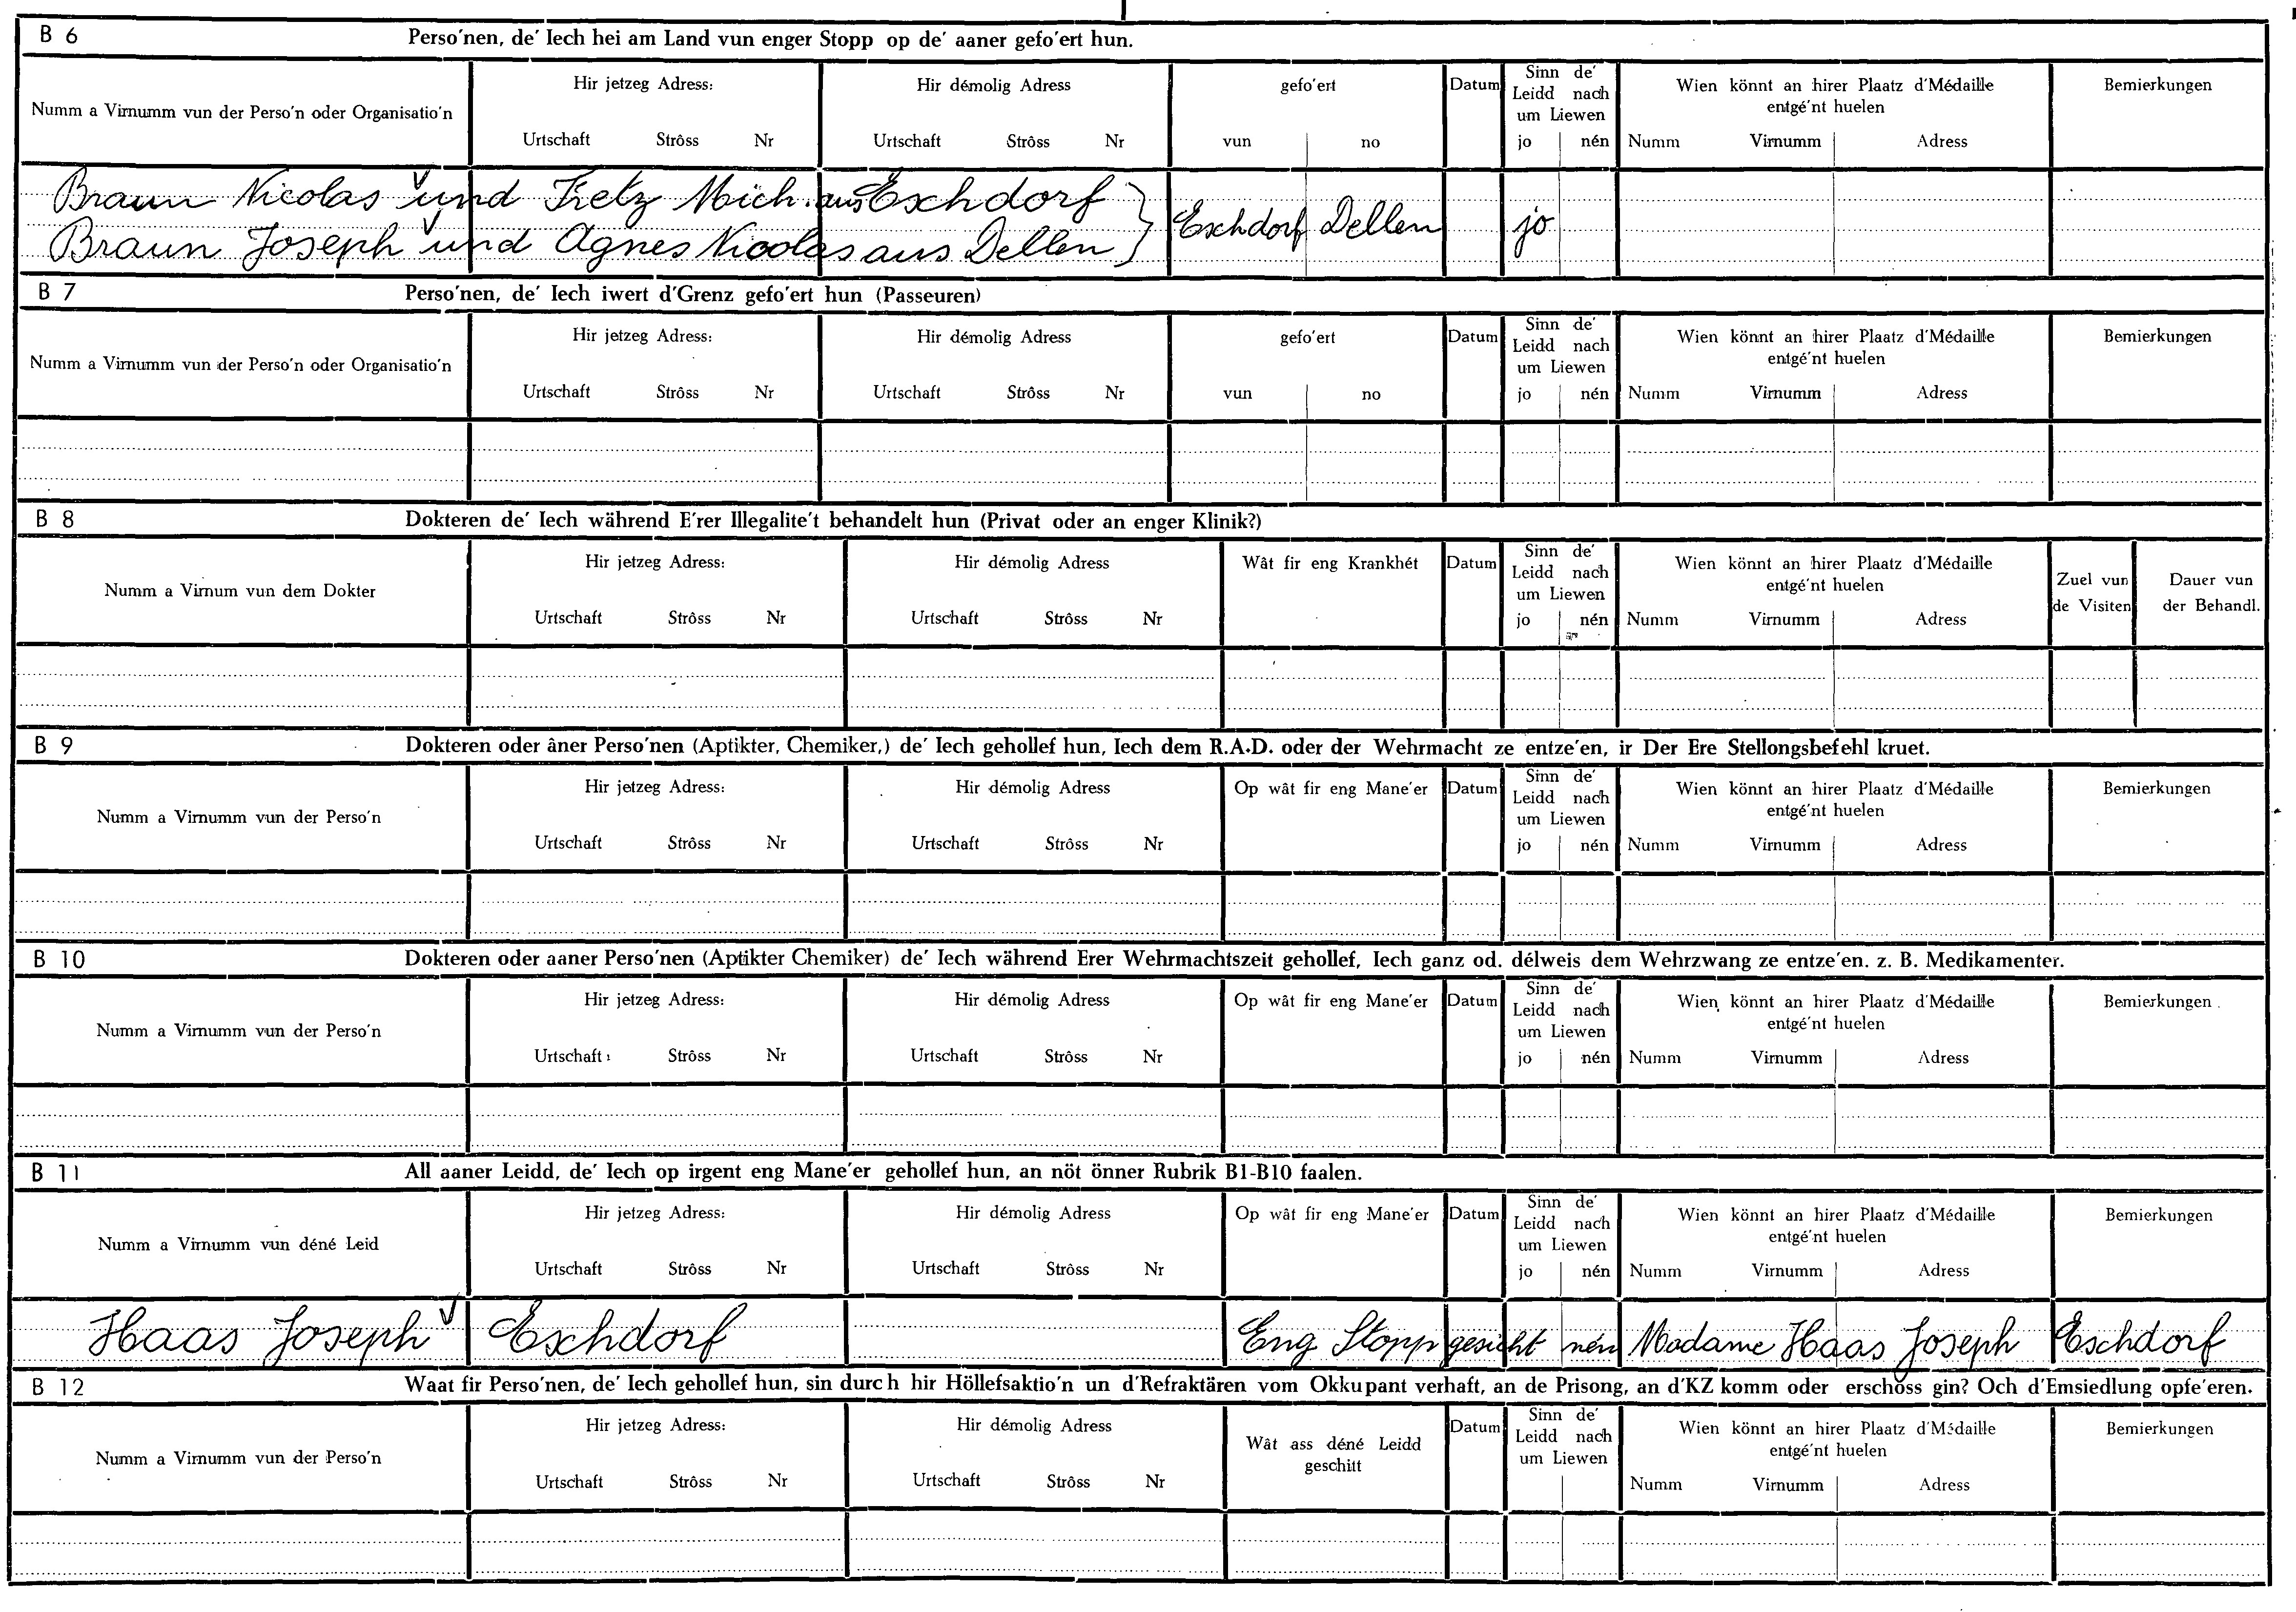 B 6 Perso'nen, de' Iech hei am Land vun enger Stopp op de' aaner gefo'ert hun.
Numm a Virnumm vun der Perso'n oder Organisatio'n
Hir jetzeg Adress:
Urtschaft Strôss Nr
Hir démolig Adress
Urtschaft Strôss Nr
gefo'ert
vun no
Datum
Sinn de'
Leidd nach
um Liewen
jo nén
Wien könnt an hirer Plaatz d'Médaille
entgé'nt huelen
Numm Virnumm Adress
Bemierkungen
Braun Nicolas und Mich. aus Eschdorf
Braun Joseph und Agnes Nicolas aus Dellen
Eschdorf Dellen jo
B 7 Perso'nen, de' Iech iwert d'Grenz gefo'ert hun (Passeuren)
Numm a Virnumm vun der Perso'n oder Organisatio'n
Hir jetzeg Adress:
Urtschaft Strôss Nr
Hir démolig Adress
Urtschaft Strôss Nr
gefo'ert
vun no
Datum
Sinn de'
Leidd nach
um Liewen
jo nén
Wien könnt an hirer Plaatz d'Médaille
entgé'nt huelen
Numm Virnumm Adress
Bemierkungen
B 8 Dokteren de' Iech während E'rer Illegalite't behandelt hun (Privat oder an enger Klinik?)
Numm a Virnum vun dem Dokter
Hir jetzeg Adress:
Urtschaft Strôss Nr
Hir démolig Adress
Urtschaft Strôss Nr
Wât fir eng Krankhét
Datum
Sinn de'
Leidd nach
um Liewen
jo nén
Wien könnt an hirer Plaatz d'Médaille
entgé'nt huelen
Numm Virnumm Adress
Zuel vun
de Visiten
Dauer vun
der Behandl.
B 9 Dokteren oder âner Perso'nen (Aptikter, Chemiker,) de' Iech gehollef hun, Iech dem R.A.D. oder der Wehrmacht ze entze'en, ir Der Ere Stellongsbefehl kruet.
Numm a Virnumm vun der Perso'n
Hir jetzeg Adress:
Urtschaft Strôss Nr
Hir démolig Adress
Urtschaft Strôss Nr
Op wât fir eng Mane'er
Datum
Sinn de'
Leidd nach
um Liewen
jo nén
Wien könnt an hirer Plaatz d'Médaille
entgé'nt huelen
Numm Virnumm Adress
Bemierkungen
B 10 Dokteren oder aaner Perso'nen (Aptikter Chemiker) de' Iech während Erer Wehrmachtszeit gehollef, Iech ganz od. délweis dem Wehrzwang ze entze'en. z. B. Medikamenter.
Numm a Virnumm vun der Perso'n
Hir jetzeg Adress:
Urtschaft Strôss Nr
Hir démolig Adress
Urtschaft Strôss Nr
Op wât fir eng Mane'er
Datum
Sinn de'
Leidd nach
um Liewen
jo nén
Wien könnt an hirer Plaatz d'Médaille
entgé'nt huelen
Numm Virnumm Adress
Bemierkungen
B 11 All aaner Leidd, de' Iech op irgent eng Mane'er gehollef hun, an nöt önner Rubrik B1-B10 faalen.
Numm a Virnumm vun déné Leid
Hir jetzeg Adress:
Urtschaft Strôss Nr
Hir démolig Adress
Urtschaft Strôss Nr
Op wât fir eng Mane'er
Datum
Sinn de'
Leidd nach
um Liewen
jo nén
Wien könnt an hirer Plaatz d'Médaille
entgé'nt huelen
Numm Virnumm Adress
Bemierkungen
Haas Joseph Eschdorf Eng Stopp gesicht nén Madame Haas Joseph Eschdorf
B 12 Waat fir Perso'nen, de' Iech gehollef hun, sin durch hir Höllefsaktio'n un d'Refraktären vom Okkupant verhaft, an de Prisong, an d'KZ komm oder erschoss gin? Och d'Emsiedlung opfe'eren.
Numm a Virnumm vun der Perso'n
Hir jetzeg Adress:
Urtschaft Strôss Nr
Hir démolig Adress
Urtschaft Strôss Nr
Wât ass déné Leidd
geschitt
Datum
Sinn de'
Leidd nach
um Liewen
Wien könnt an hirer Plaatz d'Médaille
entgé'nt huelen
Numm Virnumm Adress
Bemierkungen